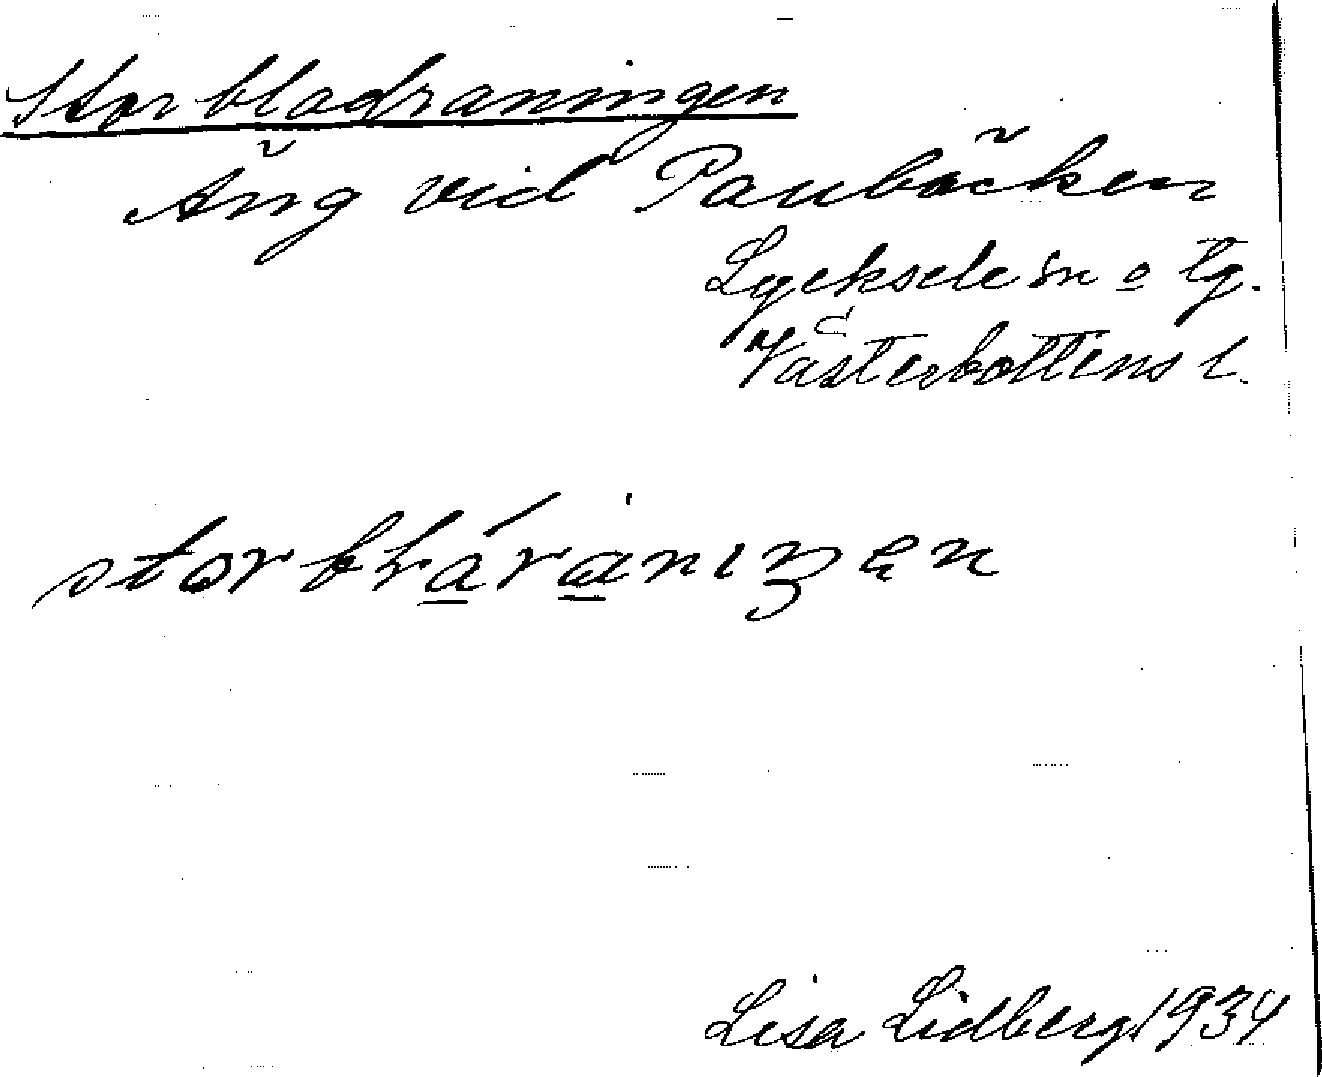 Storbladraningen
Äng vid Paubäcken
Lycksele sn o tg.
Västerbottens l.
storblάranιŋen
Lisa Lidberg 1934